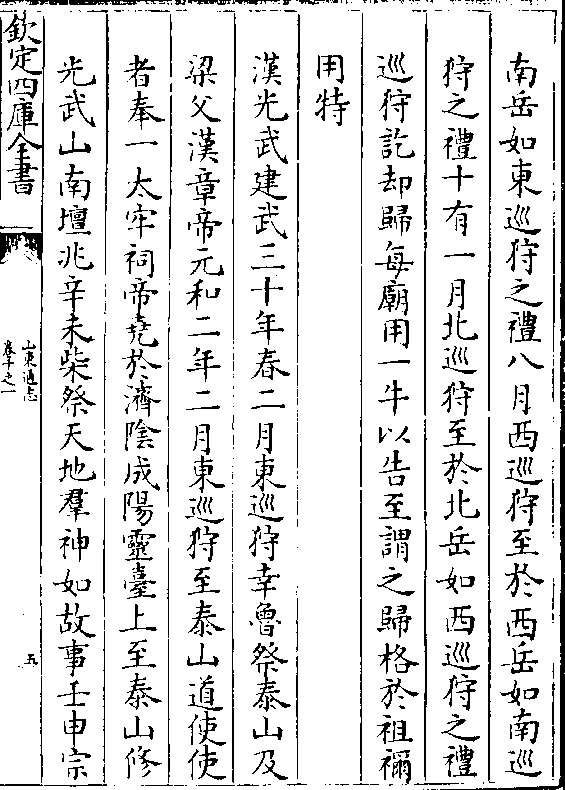 南岳如東巡狩之禮八月西巡狩至於西岳如南巡
狩之禮十有一月北巡狩至於北岳如西巡狩之禮
巡狩訖却歸每廟用一牛以告至謂之歸格於祖禰
用特
漢光武建武三十年春二月東巡狩幸魯祭泰山及
梁父漢章帝元和二年二月東巡狩至泰山道使使
者奉一太牢祠帝堯於濟陰成陽靈臺上至泰山修
光武山南壇兆辛未柴祭天地羣神如故事壬申宗
欽定四庫全書
山東通志
卷十之一
五